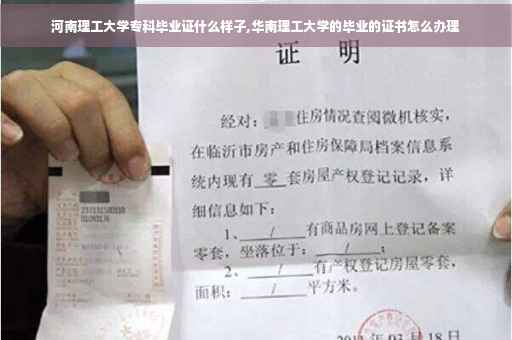 河南理工大学专科毕业证什么样子,华南理工大学的毕业的证书怎么办理
证 明
经对: 住房情况查阅微机核实,
在临沂市房产和住房保障局档案信息系
统内现有 零 套房屋产权登记记录, 详
细信息如下:
1、 / 有商品房网上登记备案
零套, 坐落位于: / ;
2、 / 有产权登记房屋零套,
面积: / 平方米。
03月18日